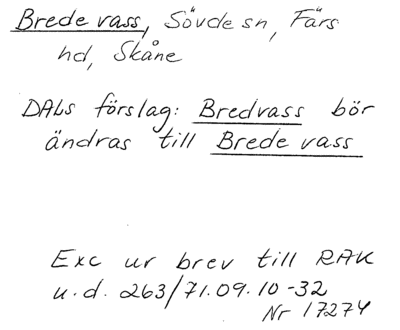 Brede vass, Sövde sn, Färs
hd, Skåne
DALs förslag: Bredvass bör
ändras till Brede vass
Exc ur brev till RAK
u.d. 263/71.09.10-32
Nr 17274